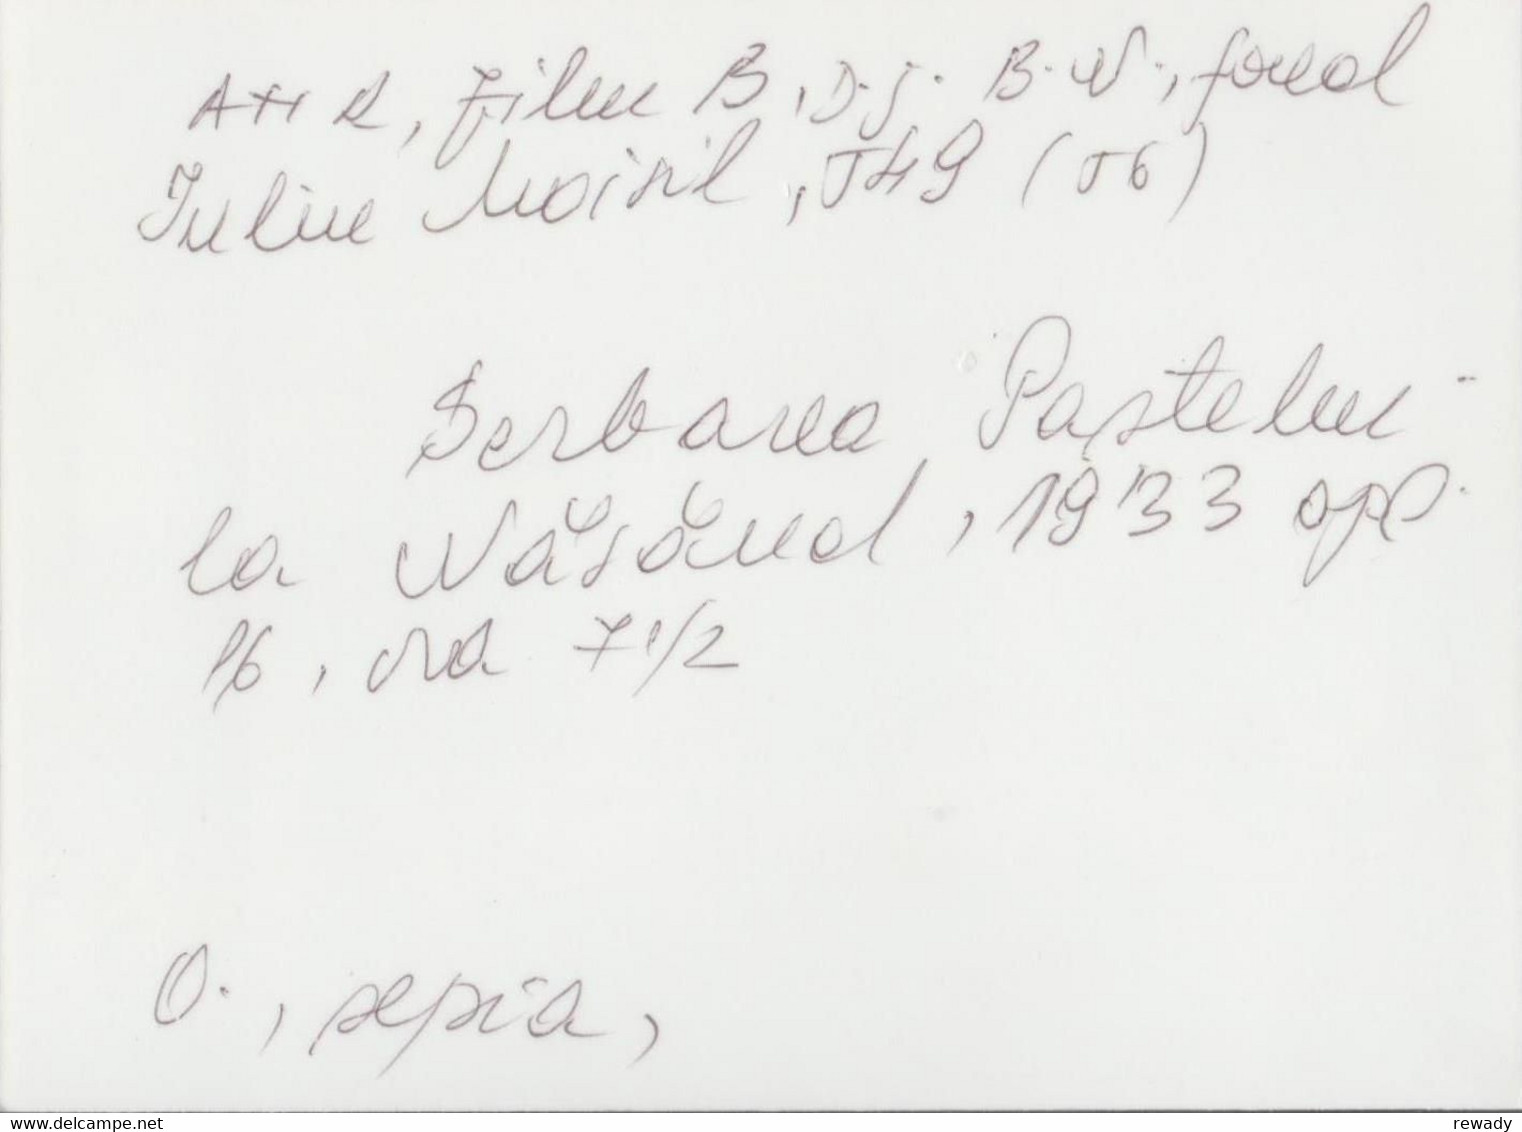 ANR, Film B, D.J. B.N., fond
Iuliu Moisil, J49 (J6)
Serbarea Paștelui
la Năsăud, 1933 apr.
16, ora 7 1/2
O., sepia,
www.delcampe.net
rewady